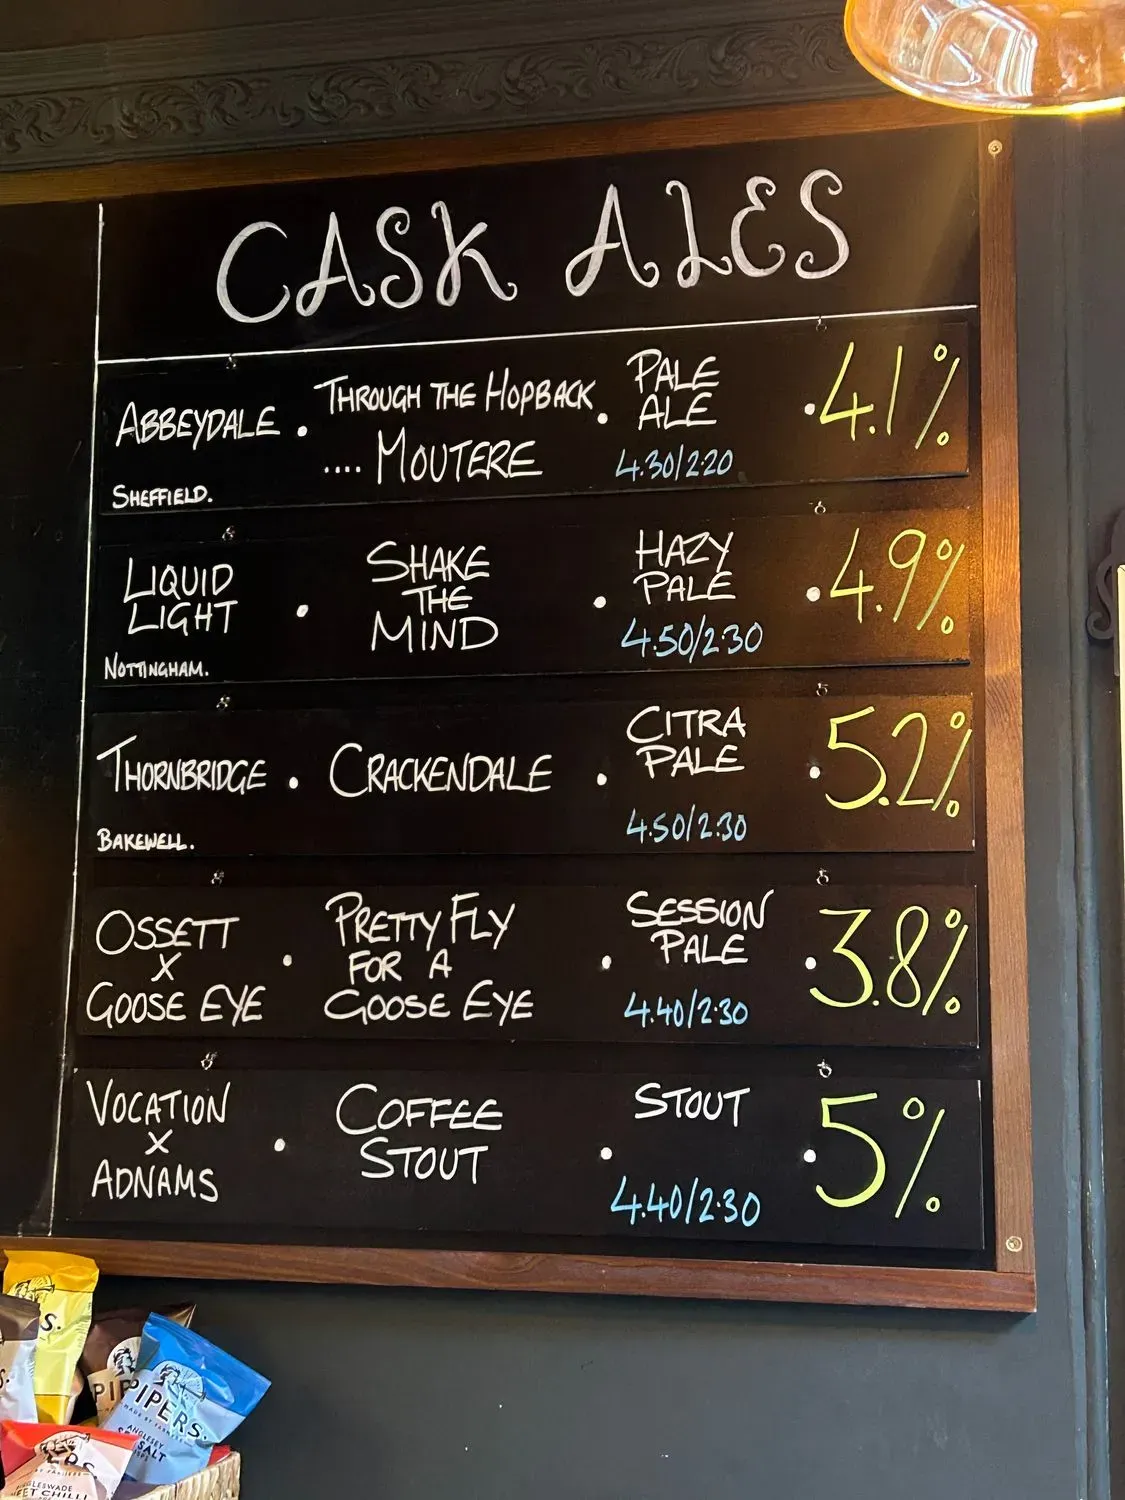 CASK ALES
ABBEYDALE • THROUGH THE HOPBACK • PALE ALE • 4.1%
.... MOUTERE
4.30/2.20
SHEFFIELD.
LIQUID LIGHT • SHAKE THE MIND • HAZY PALE • 4.9%
4.50/2.30
NOTTINGHAM.
THORNBRIDGE • CRACKENDALE • CITRA PALE • 5.2%
4.50/2.30
BAKEWELL.
OSSETT X GOOSE EYE • PRETTY FLY FOR A GOOSE EYE • SESSION PALE • 3.8%
4.40/2.30
VOCATION X ADNAMS • COFFEE STOUT • STOUT • 5%
4.40/2.30
PIPERS.
MADE BY FARMERS
ANGLESEY
SEA SALT